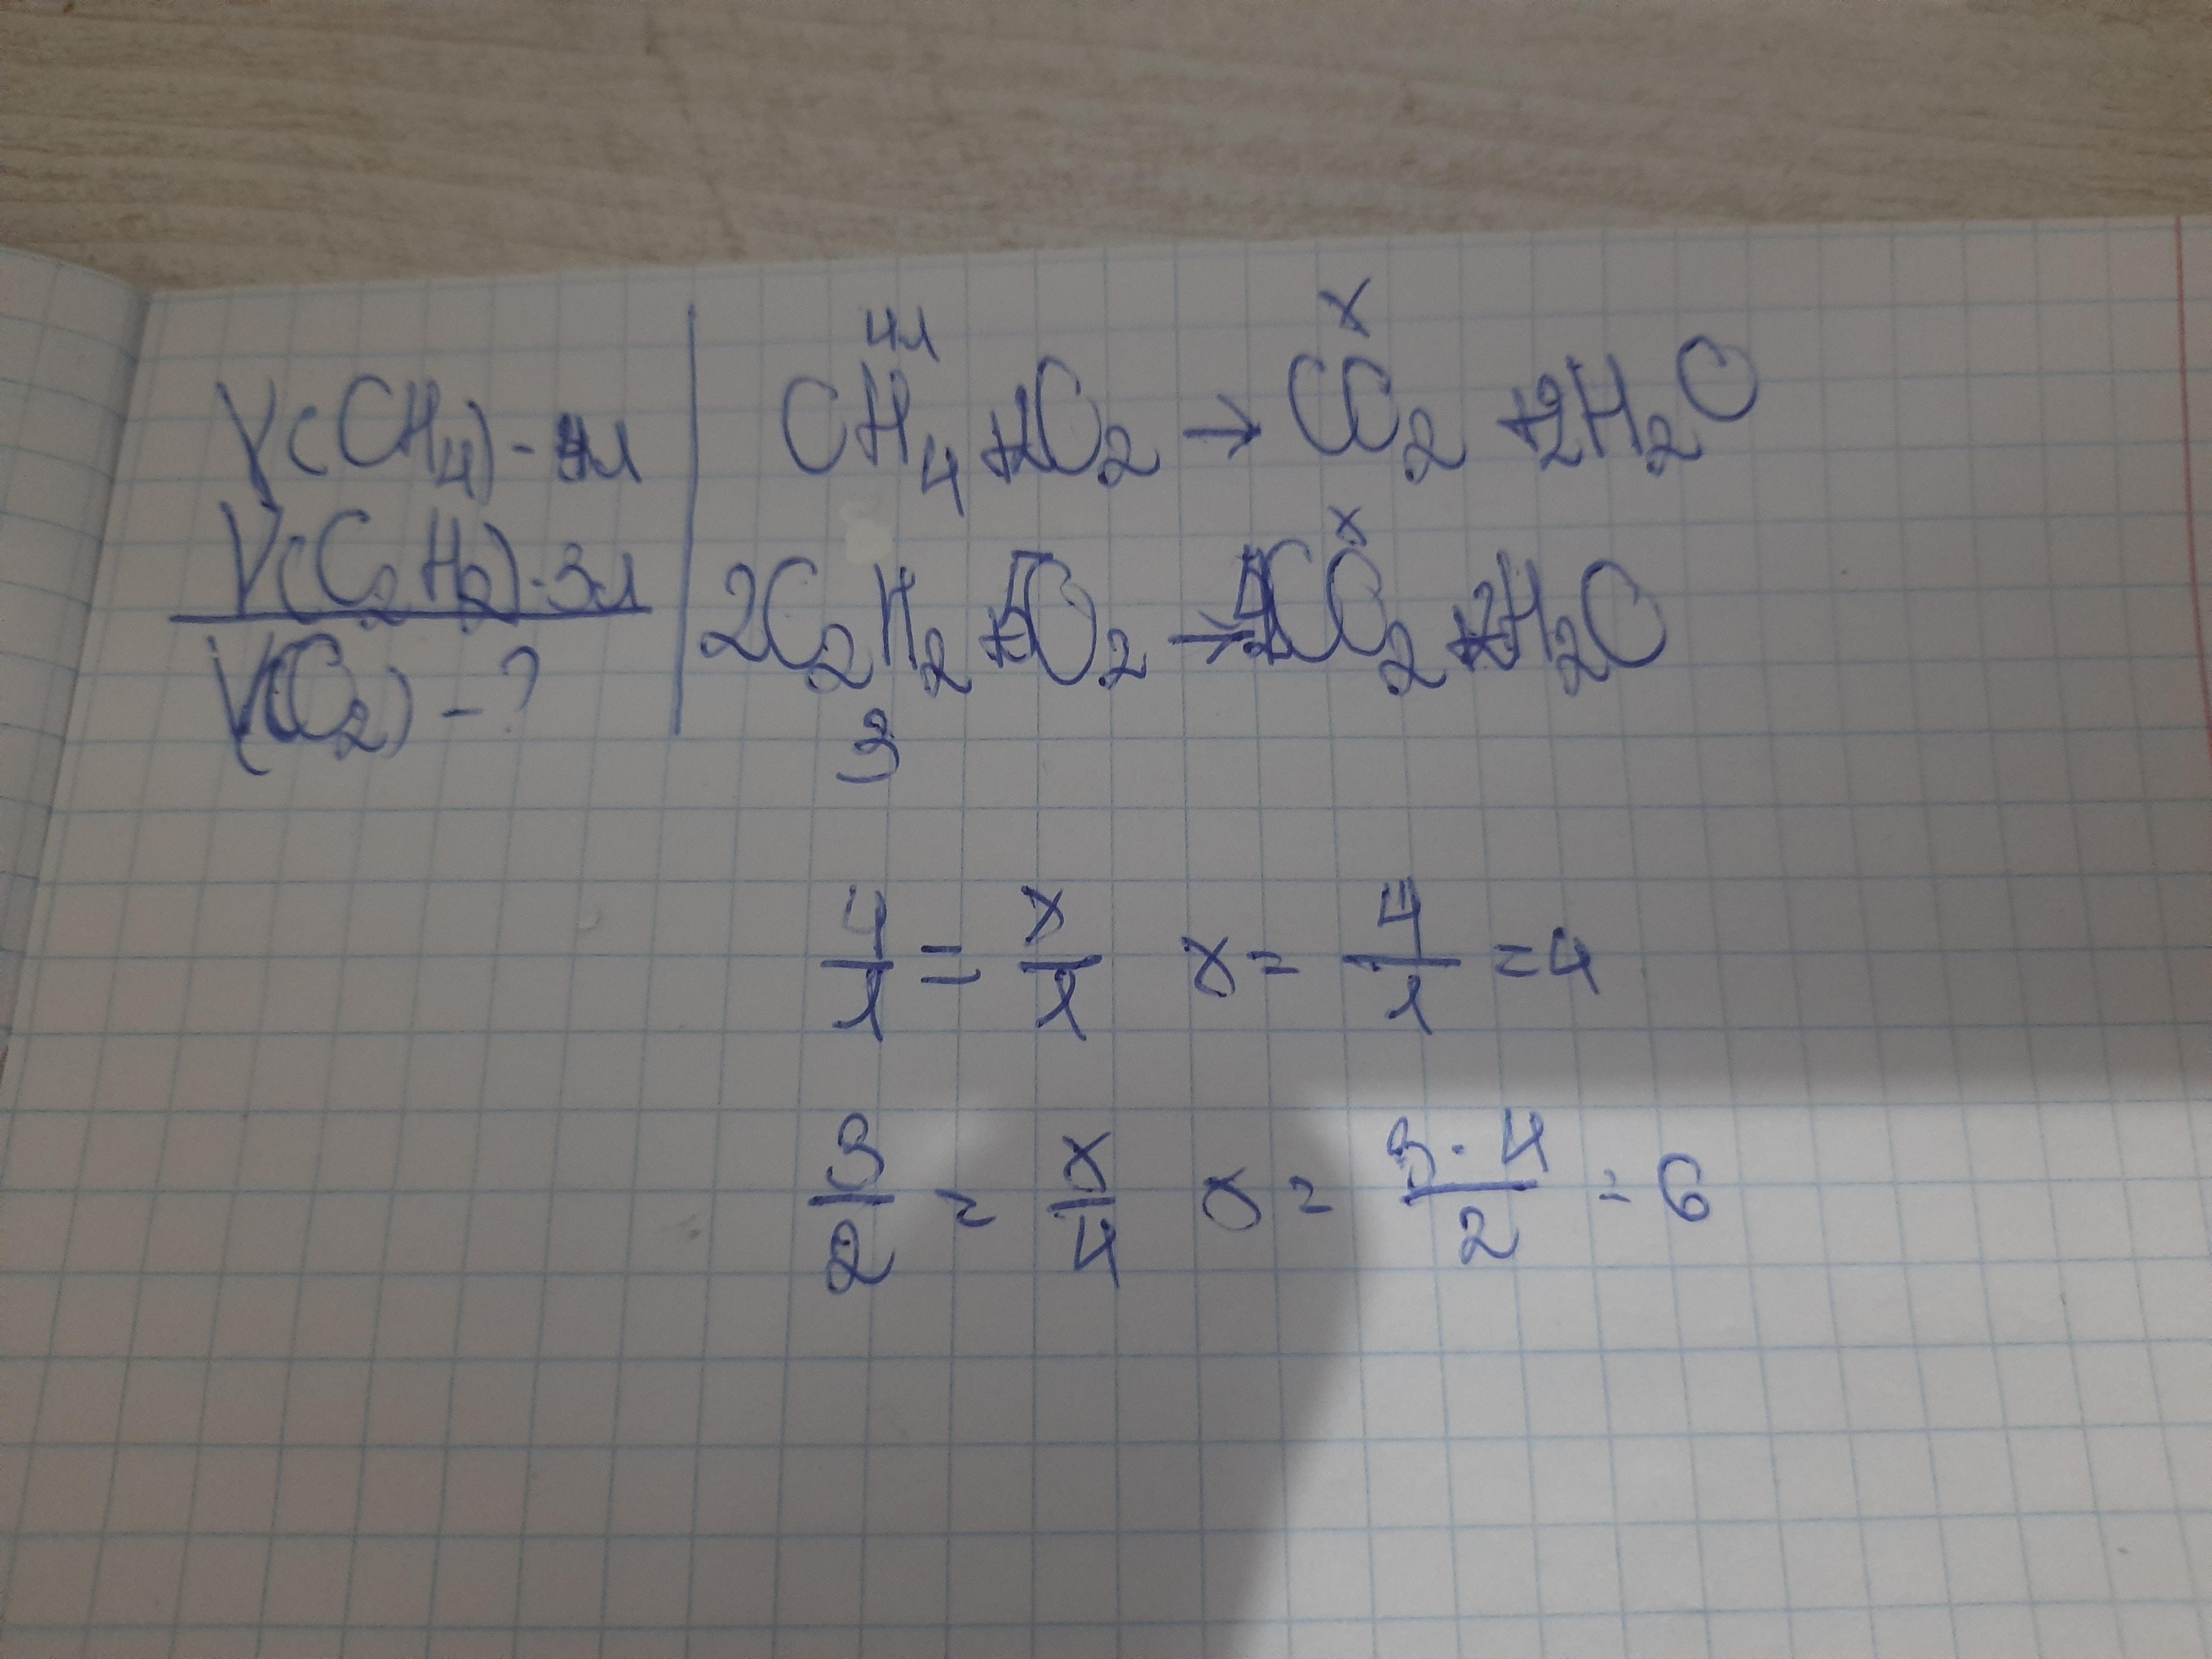 V(CH₄) - 4л
V(C₂H₂) - 3л
V(CO₂) - ?
4л x
CH₄ + 2O₂ → CO₂ + 2H₂O
x
2C₂H₂ + 5O₂ → 4CO₂ + 2H₂O
3
4/1 = x/1 x = 4/1 = 4
3/2 = x/4 x = 3·4/2 = 6